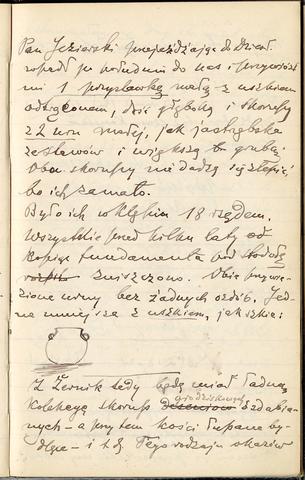 Pan Jezierski przejeżdżając do Dział.
wpadł po południu do nas i przywiózł
mi 1 przystawkę małą z uszkiem
odtrąconem, dość głęboką i skorupy
z 2 urn małej, jak jastrzębska
zestawów i większą tę grubą.
Obie skorupy nie dadzą się zlepić
bo ich zamało.
Było ich w klęku 18 rzędem.
Wszystkie przed kilku laty od
kopując fundamenta pod stodołę
zniszczono. Obie przywie-
zione urny bez żadnych ozdób. Jed-
na mniejsza z uszkiem, jak szkic:
Z Żernik tedy będę miał ładną
kolekcyę skorup grodziskowych ozdabia-
nych – a przytem kości łupane by-
dlęce – i t d. Tego rodzaju okazów